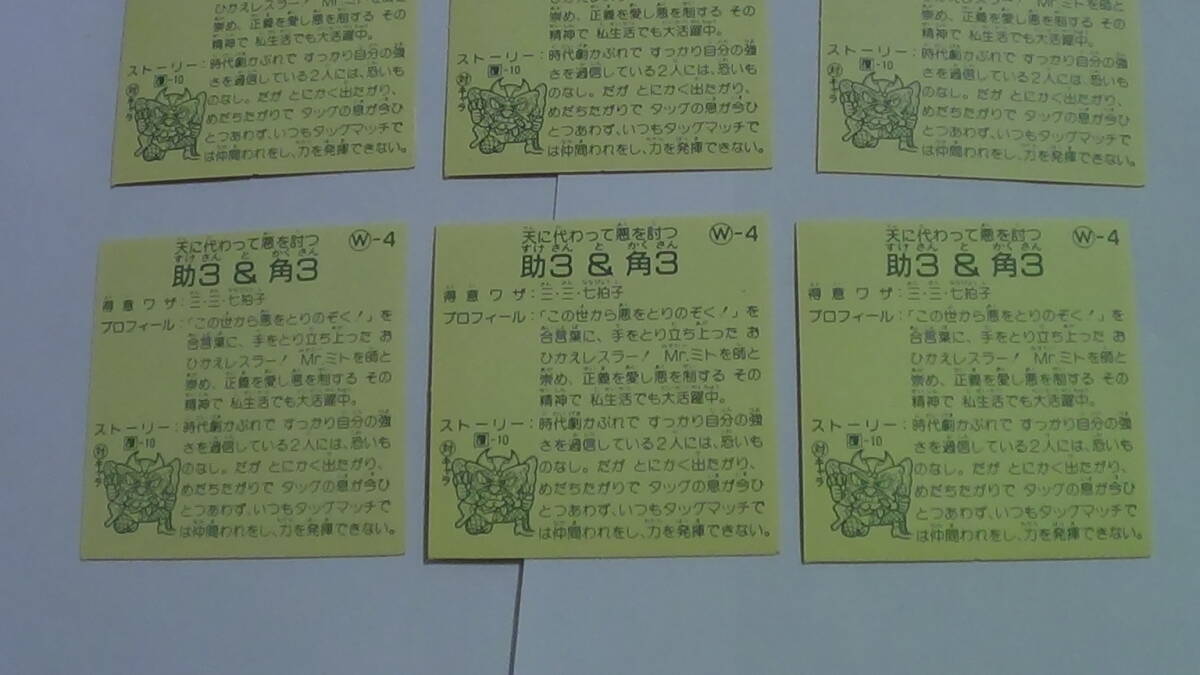 ひかえレスラー! Mr.ミトを師と
崇め、正義を愛し悪を制する その
精神で 私生活でも大活躍中。
ストーリー:時代劇かぶれで すっかり自分の強
さを過信している2人には、恐いも
のなし。だが とにかく出たがり、
めだちたがりで タッグの息が今ひ
とつあわず、いつもタッグマッチで
は仲間われをし、力を発揮できない。
-10
対キャラ
崇め、正義を愛し悪を制する その
精神で 私生活でも大活躍中。
ストーリー:時代劇かぶれで すっかり自分の強
さを過信している2人には、恐いも
のなし。だが とにかく出たがり、
めだちたがりで タッグの息が今ひ
とつあわず、いつもタッグマッチで
は仲間われをし、力を発揮できない。
-10
対キャラ
崇め、正義を愛し悪を制する その
精神で 私生活でも大活躍中。
ストーリー:時代劇かぶれで すっかり自分の強
さを過信している2人には、恐いも
のなし。だが とにかく出たがり、
めだちたがりで タッグの息が今ひ
とつあわず、いつもタッグマッチで
は仲間われをし、力を発揮できない。
-10
対キャラ
天に代わって悪を討つ
Ⓦ-4
すけ さん と かく さん
助3 & 角3
得意ワザ:三・三・七拍子
プロフィール:「この世から悪をとりのぞく!」を
合言葉に、手をとり立ち上った お
ひかえレスラー! Mr.ミトを師と
崇め、正義を愛し悪を制する その
精神で 私生活でも大活躍中。
ストーリー:時代劇かぶれで すっかり自分の強
さを過信している2人には、恐いも
のなし。だが とにかく出たがり、
めだちたがりで タッグの息が今ひ
とつあわず、いつもタッグマッチで
は仲間われをし、力を発揮できない。
-10
対キャラ
天に代わって悪を討つ
Ⓦ-4
すけ さん と かく さん
助3 & 角3
得意ワザ:三・三・七拍子
プロフィール:「この世から悪をとりのぞく!」を
合言葉に、手をとり立ち上った お
ひかえレスラー! Mr.ミトを師と
崇め、正義を愛し悪を制する その
精神で 私生活でも大活躍中。
ストーリー:時代劇かぶれで すっかり自分の強
さを過信している2人には、恐いも
のなし。だが とにかく出たがり、
めだちたがりで タッグの息が今ひ
とつあわず、いつもタッグマッチで
は仲間われをし、力を発揮できない。
-10
対キャラ
天に代わって悪を討つ
Ⓦ-4
すけ さん と かく さん
助3 & 角3
得意ワザ:三・三・七拍子
プロフィール:「この世から悪をとりのぞく!」を
合言葉に、手をとり立ち上った お
ひかえレスラー! Mr.ミトを師と
崇め、正義を愛し悪を制する その
精神で 私生活でも大活躍中。
ストーリー:時代劇かぶれで すっかり自分の強
さを過信している2人には、恐いも
のなし。だが とにかく出たがり、
めだちたがりで タッグの息が今ひ
とつあわず、いつもタッグマッチで
は仲間われをし、力を発揮できない。
-10
対キャラ